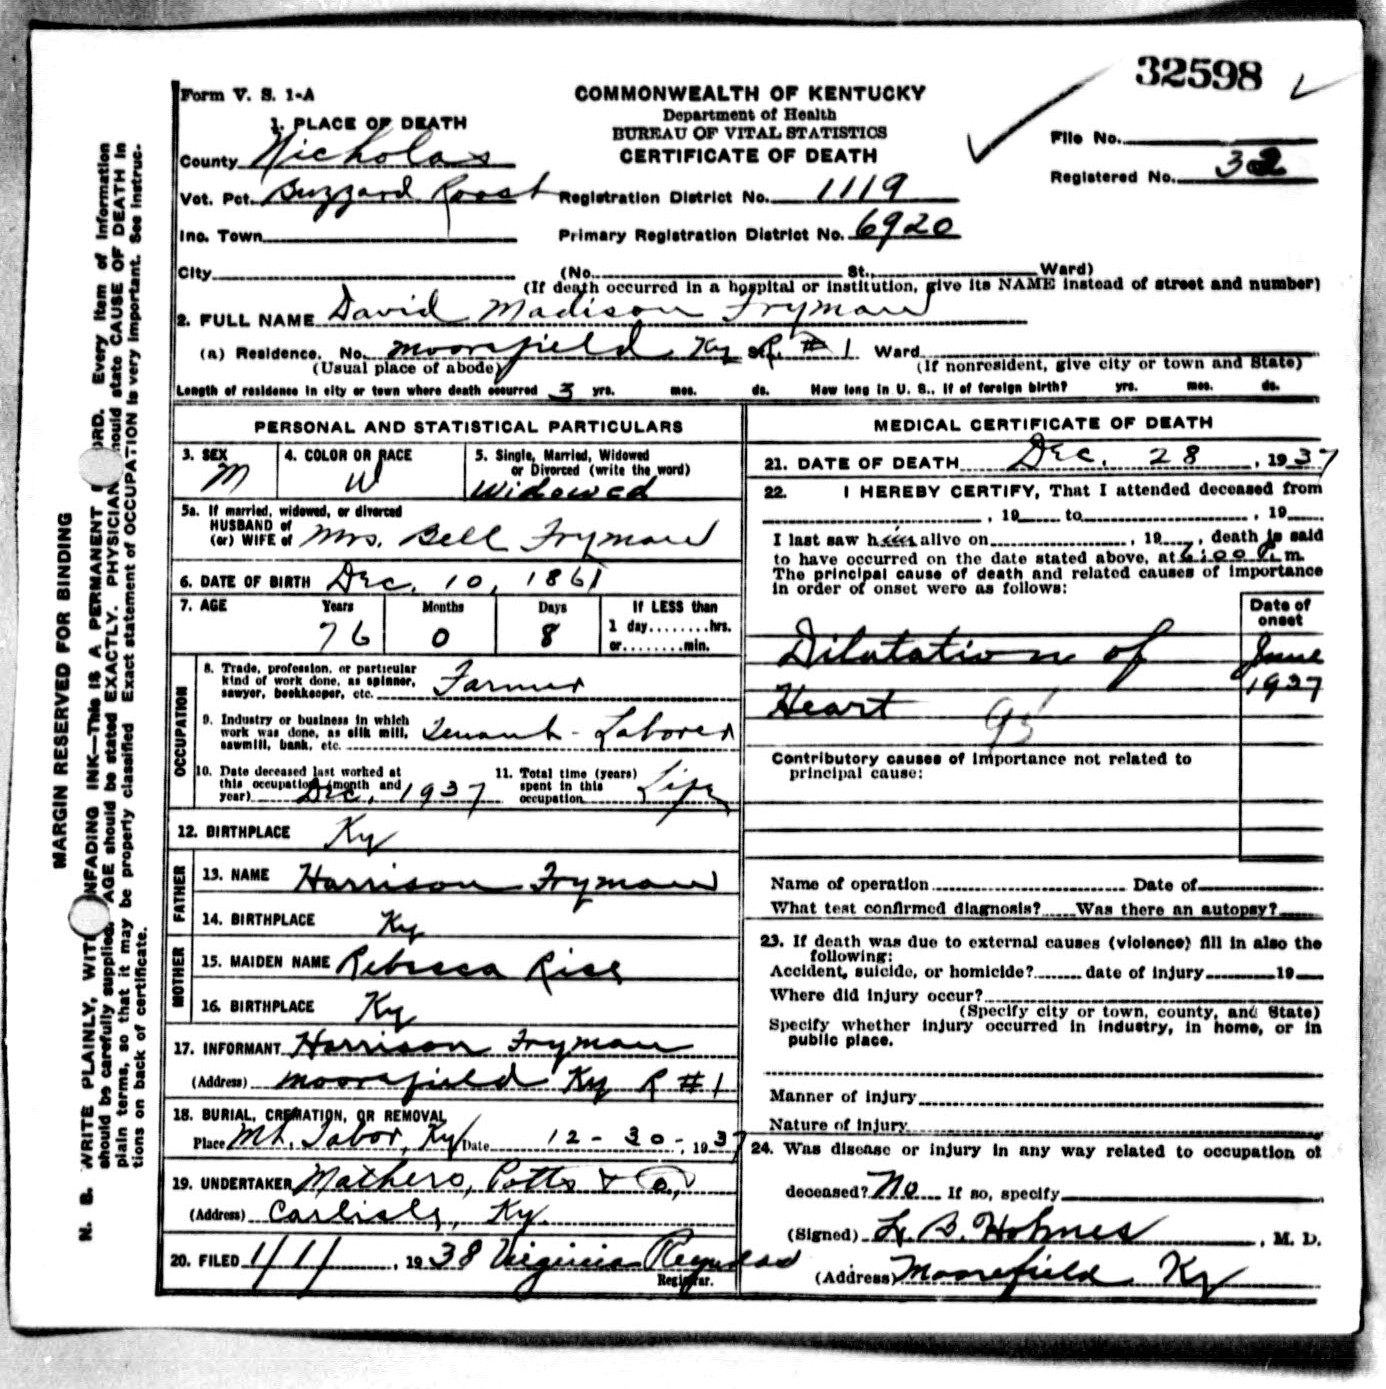 32598
Form V. S. 1-A
COMMONWEALTH OF KENTUCKY
Department of Health
BUREAU OF VITAL STATISTICS
CERTIFICATE OF DEATH
File No.
Registered No. 32
1. PLACE OF DEATH
County Nicholas
Vot. Pct. Buzzard Roost Registration District No. 1119
Inc. Town Primary Registration District No. 6920
City (No. St., Ward)
(If death occurred in a hospital or institution, give its NAME instead of street and number)
2. FULL NAME David Madison Fryman
(a) Residence. No. Moorefield Ky St. R. # 1 Ward
(Usual place of abode) (If nonresident, give city or town and State)
Length of residence in city or town where death occurred 3 yrs. mos. ds. How long in U. S., if of foreign birth? yrs. mos. ds.
PERSONAL AND STATISTICAL PARTICULARS
3. SEX M
4. COLOR OR RACE W
5. Single, Married, Widowed or Divorced (write the word) Widowed
5a. If married, widowed, or divorced
HUSBAND of
(or) WIFE of Mrs. Bell Fryman
6. DATE OF BIRTH Dec. 10, 1861
7. AGE Years Months Days If LESS than
76 0 8 1 day........hrs.
or........min.
OCCUPATION
8. Trade, profession, or particular
kind of work done, as spinner,
sawyer, bookkeeper, etc. Farmer
9. Industry or business in which
work was done, as silk mill,
sawmill, bank, etc. Tenant - Laborer
10. Date deceased last worked at
this occupation (month and
year) Dec, 1937
11. Total time (years)
spent in this
occupation Life
12. BIRTHPLACE Ky
FATHER
13. NAME Harrison Fryman
14. BIRTHPLACE Ky
MOTHER
15. MAIDEN NAME Rebecca Rice
16. BIRTHPLACE Ky
17. INFORMANT Harrison Fryman
(Address) Moorefield Ky R #1
18. BURIAL, CREMATION, OR REMOVAL
Place Mt. Tabor, Ky Date 12-30-, 1937
19. UNDERTAKER Mathers, Potts & Co.
(Address) Carlisle, Ky.
20. FILED 1/1/, 1938 Virginia Reynolds
Registrar.
MEDICAL CERTIFICATE OF DEATH
21. DATE OF DEATH Dec. 28, 1937
22. I HEREBY CERTIFY, That I attended deceased from
, 19 to , 19
I last saw him alive on , 19 , death is said
to have occurred on the date stated above, at 6:00 P. m.
The principal cause of death and related causes of importance
in order of onset were as follows:
Date of
onset
Dilatation of June
Heart 1937
Contributory causes of importance not related to
principal cause:
Name of operation Date of
What test confirmed diagnosis? Was there an autopsy?
23. If death was due to external causes (violence) fill in also the
following:
Accident, suicide, or homicide? date of injury 19
Where did injury occur?
(Specify city or town, county, and State)
Specify whether injury occurred in industry, in home, or in
public place.
Manner of injury
Nature of injury
24. Was disease or injury in any way related to occupation of
deceased? No If so, specify
(Signed) L. B. Holmes, M. D.
(Address) Moorefield Ky
MARGIN RESERVED FOR BINDING
N. B. WRITE PLAINLY, WITH UNFADING INK—THIS IS A PERMANENT RECORD. Every item of information
should be carefully supplied. AGE should be stated EXACTLY. PHYSICIANS should state CAUSE OF DEATH in
plain terms, so that it may be properly classified. Exact statement of OCCUPATION is very important. See instruc-
tions on back of certificate.